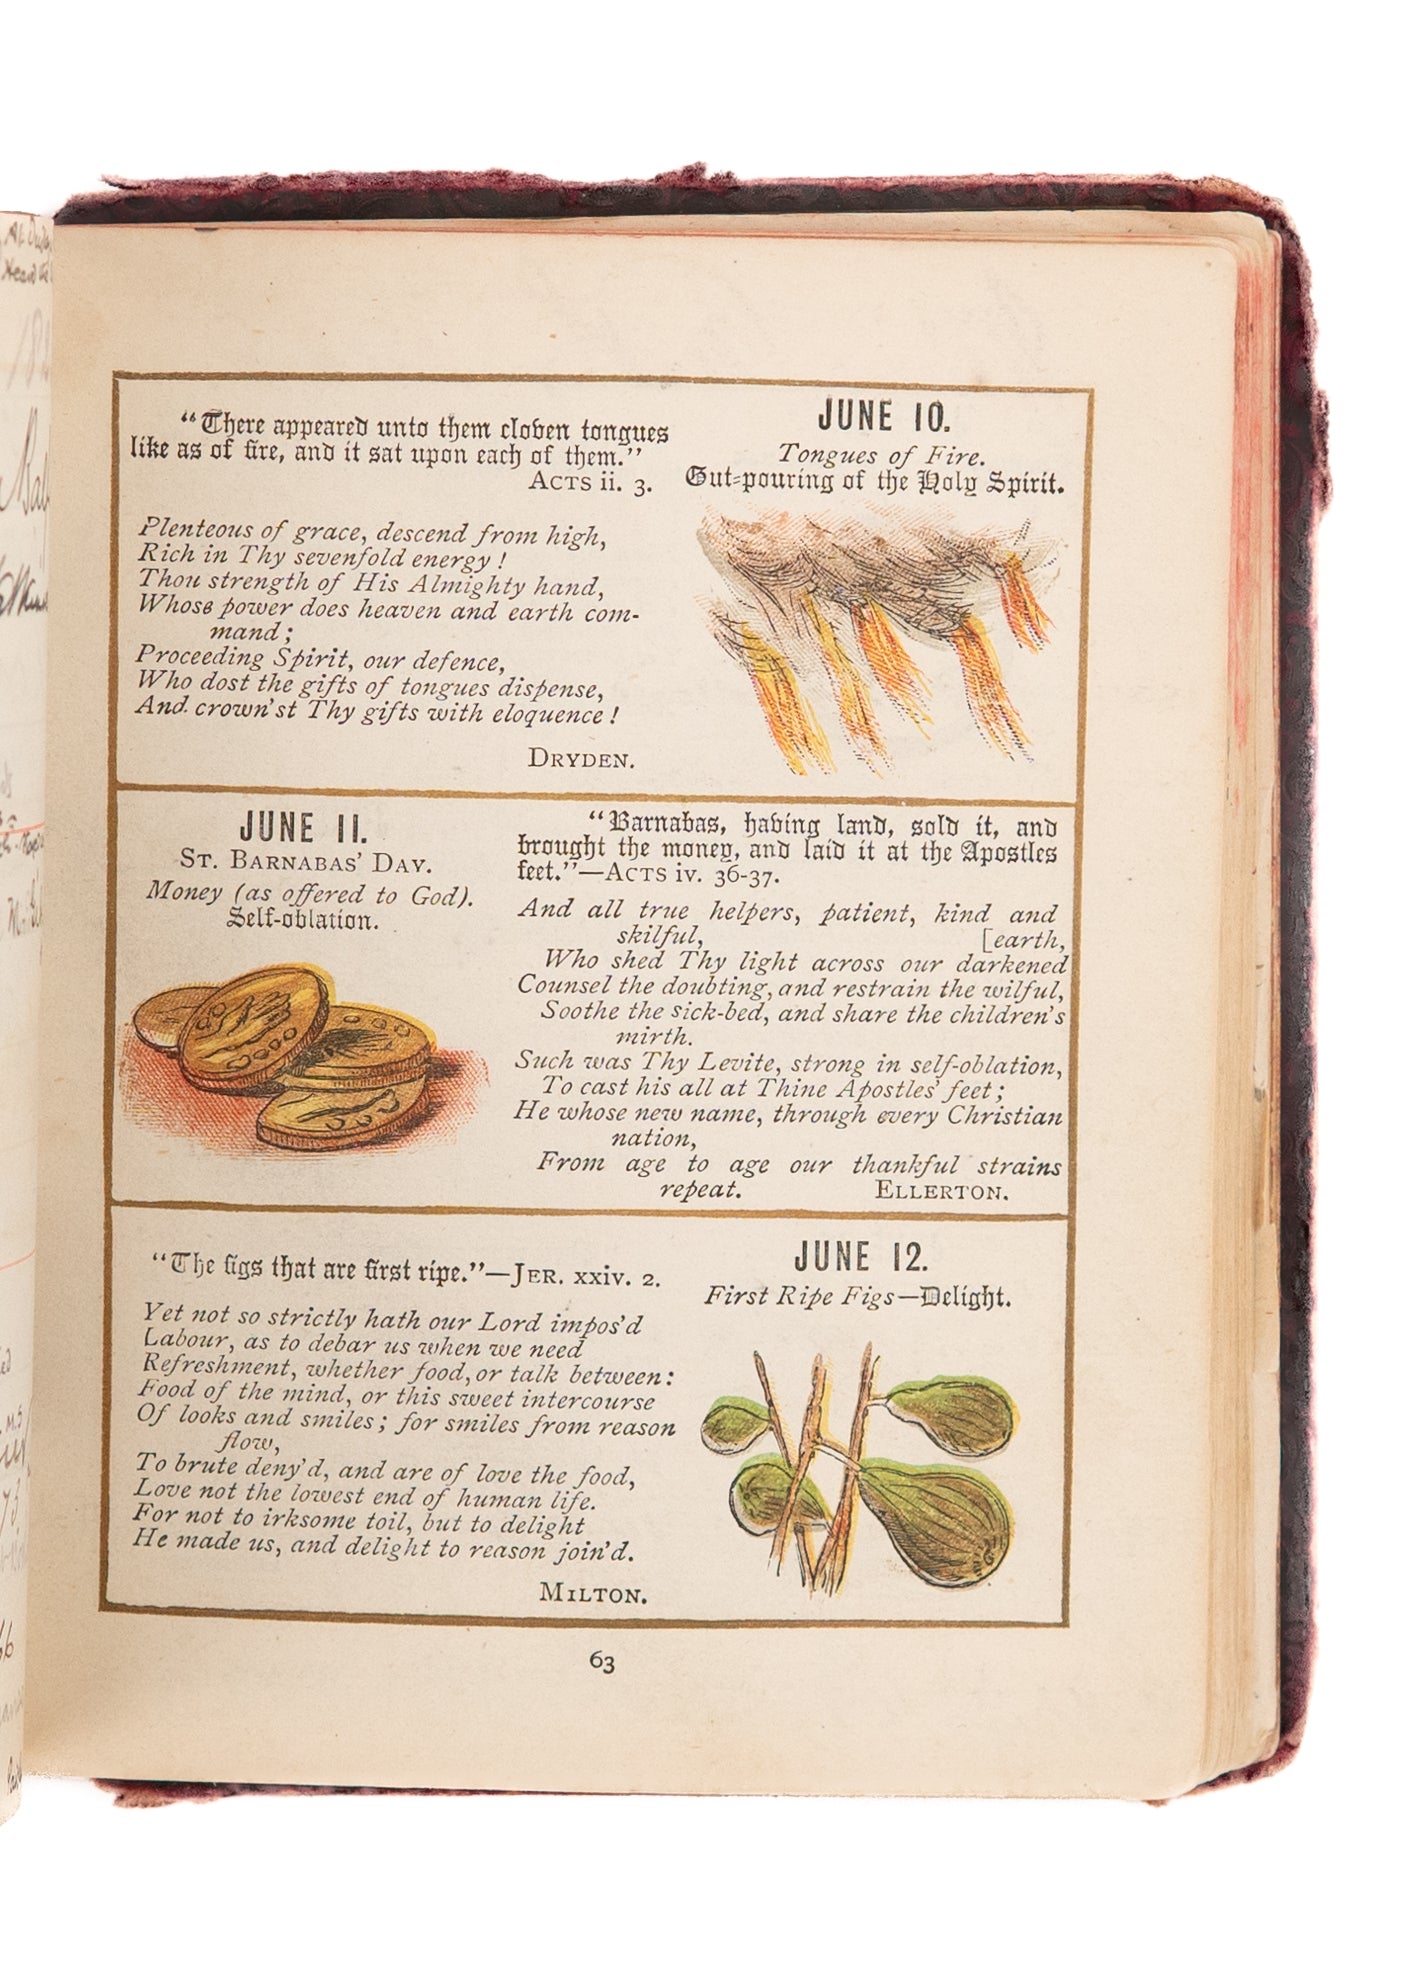 "There appeared unto them cloven tongues
like as of fire, and it sat upon each of them."
ACTS ii. 3.
Plenteous of grace, descend from high,
Rich in Thy sevenfold energy!
Thou strength of His Almighty hand,
Whose power does heaven and earth com-
mand;
Proceeding Spirit, our defence,
Who dost the gifts of tongues dispense,
And crown'st Thy gifts with eloquence!
DRYDEN.
JUNE 10.
Tongues of Fire.
Out-pouring of the Holy Spirit.
JUNE 11.
ST. BARNABAS' DAY.
Money (as offered to God).
Self-oblation.
"Barnabas, having land, sold it, and
brought the money, and laid it at the Apostles
feet."—ACTS iv. 36-37.
And all true helpers, patient, kind and
skilful, [earth,
Who shed Thy light across our darkened
Counsel the doubting, and restrain the wilful,
Soothe the sick-bed, and share the children's
mirth.
Such was Thy Levite, strong in self-oblation,
To cast his all at Thine Apostles' feet;
He whose new name, through every Christian
nation,
From age to age our thankful strains
repeat. ELLERTON.
"The figs that are first ripe."—JER. xxiv. 2.
Yet not so strictly hath our Lord impos'd
Labour, as to debar us when we need
Refreshment, whether food, or talk between:
Food of the mind, or this sweet intercourse
Of looks and smiles; for smiles from reason
flow,
To brute deny'd, and are of love the food,
Love not the lowest end of human life.
For not to irksome toil, but to delight
He made us, and delight to reason join'd.
MILTON.
JUNE 12.
First Ripe Figs—Delight.
63